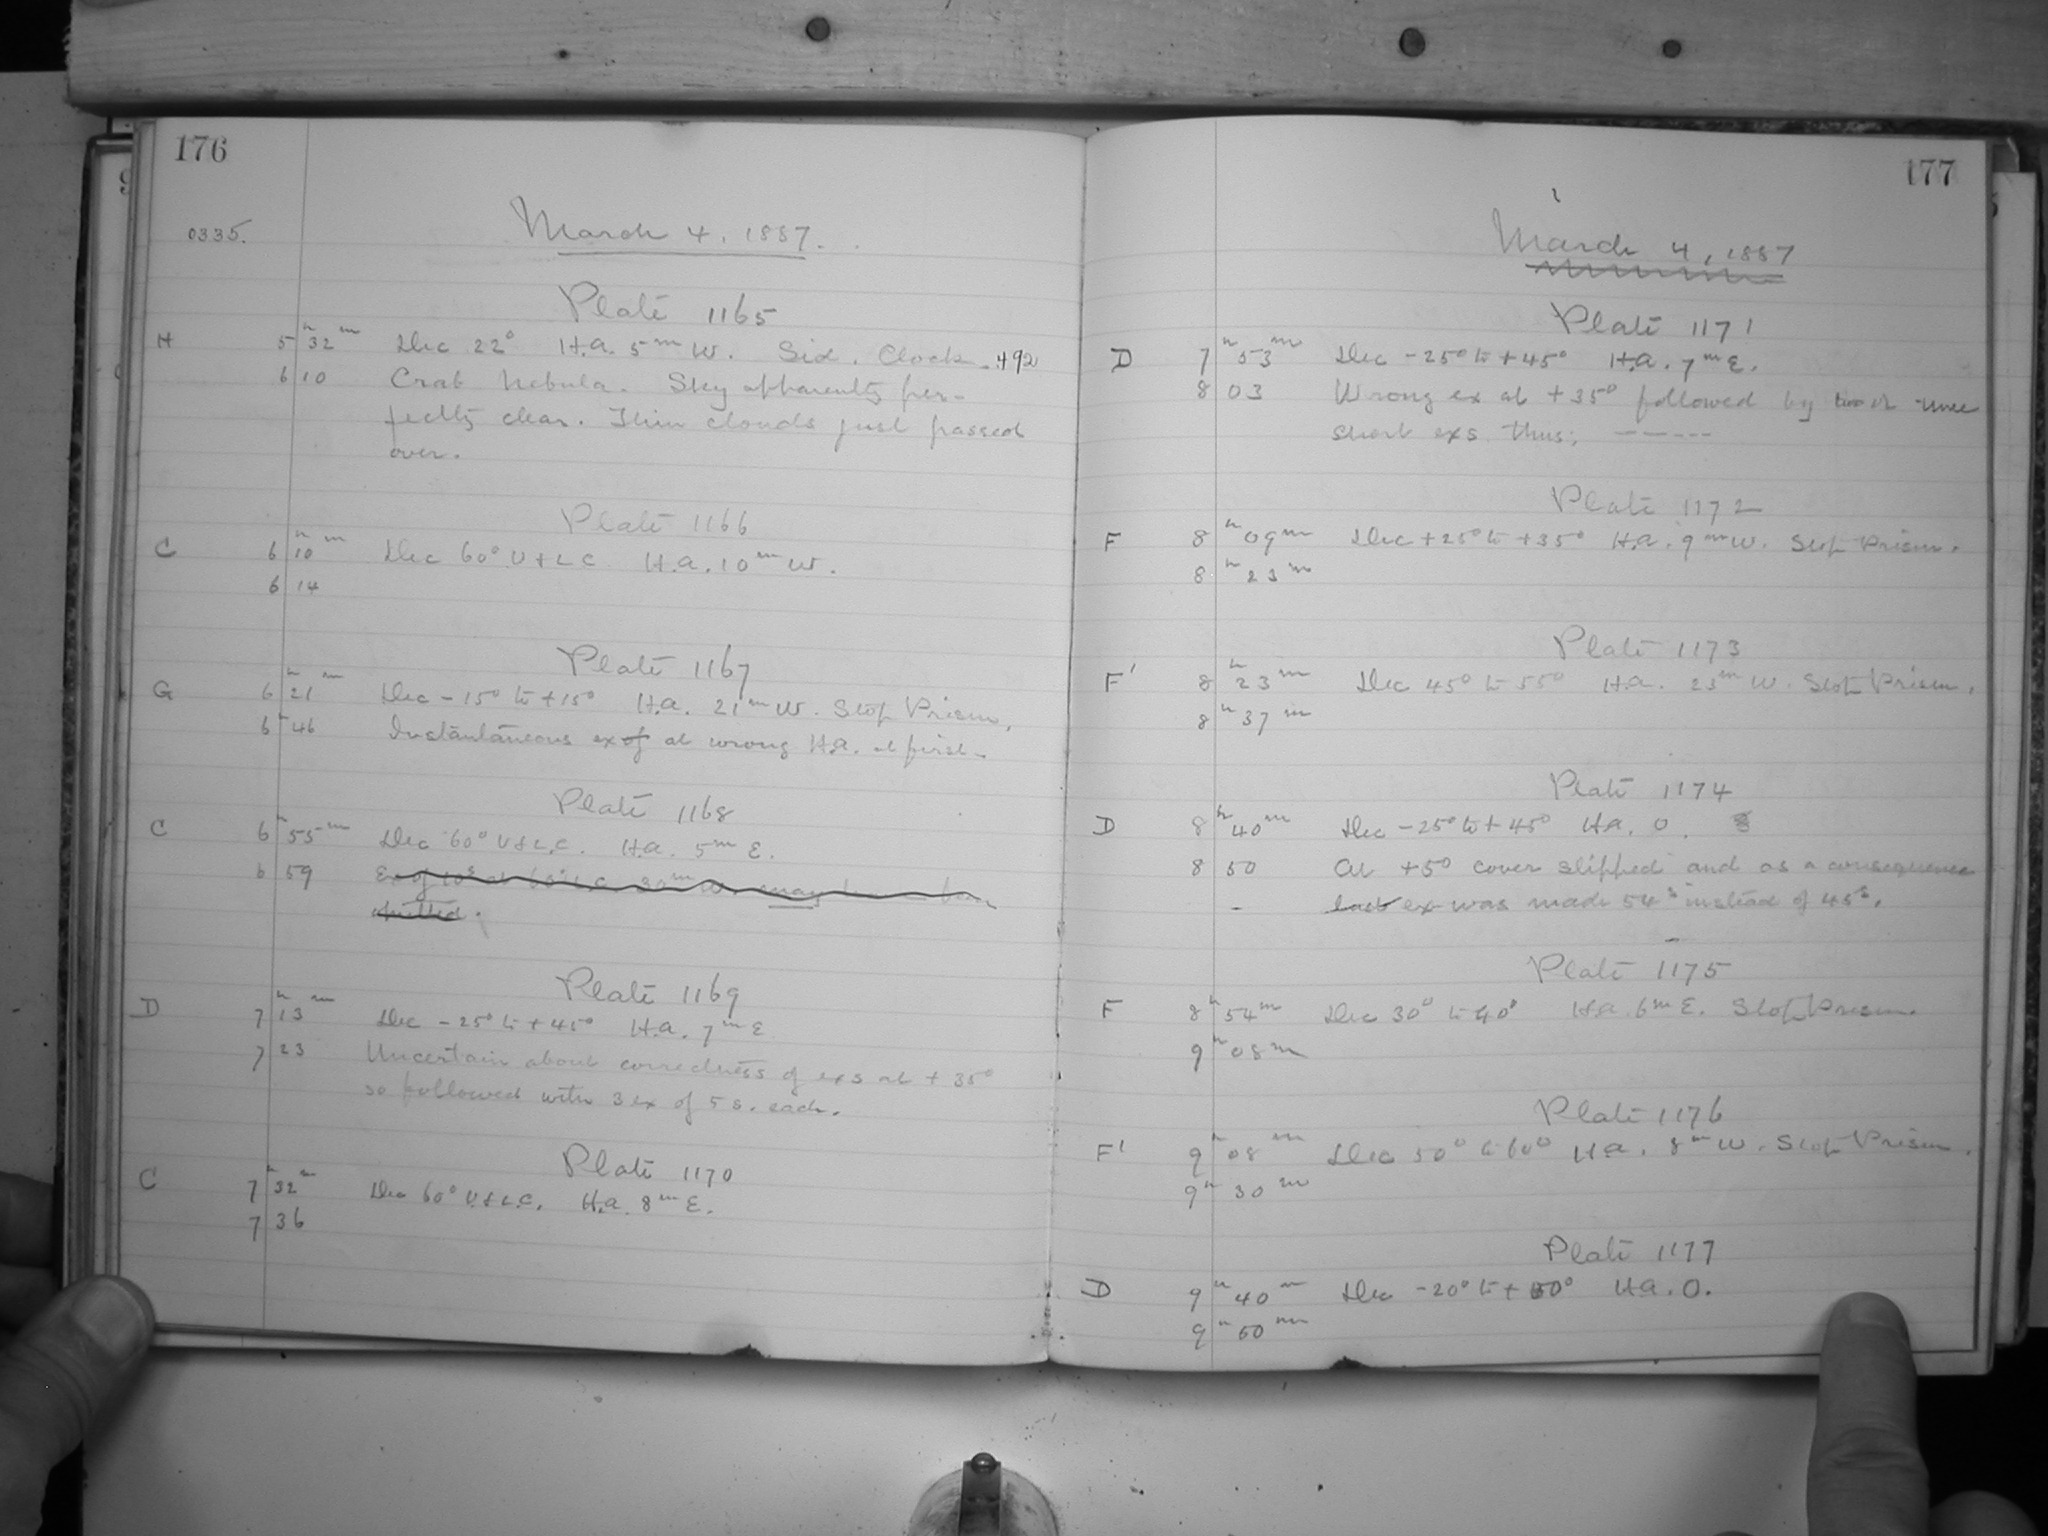 176
0335.
March 4, 1887.
Plate 1165
H 5h 32m Dec 22° H.A. 5m W. Sid. Clock .492
6 10 Crab Nebula. Sky apparently per-
fectly clear. Thin clouds just passed
over.
Plate 1166
C 6h 10m Dec 60° U & L C H.A. 10m W.
6 14
Plate 1167
G 6h 21m Dec -15° to +15° H.A. 21m W. Stop Prism.
6 46 Instantaneous ex of at wrong H.A. at first-
Plate 1168
C 6h 55m Dec 60° U & L.C. H.A. 5m E.
6 59 Ex of 10s at 60° L.C. 30m W. may have been
omitted.
Plate 1169
D 7h 13m Dec -25° to +45° H.A. 7m E
7 23 Uncertain about correctness of exs at +35°
so followed with 3 ex of 5 s. each.
Plate 1170
C 7h 32m Dec 60° U & L.C. H.A. 8m E.
7 36
177
March 4, 1887
Plate 1171
D 7h 53m Dec -25° to +45° H.A. 7m E.
8 03 Wrong ex at +35° followed by two or three
short exs. thus; -----
Plate 1172
F 8h 09m Dec +25° to +35° H.A. 9m W. Stop Prism.
8h 23m
Plate 1173
F' 8h 23m Dec 45° to 55° H.A. 23m W. Stop Prism.
8h 37m
Plate 1174
D 8h 40m Dec -25° to +45° H.A. 0.
8 50 At +5° cover slipped and as a consequence
- last ex was made 54s instead of 45s.
Plate 1175
F 8h 54m Dec 30° to 40° H.A. 6m E. Stop Prism.
9h 08m
Plate 1176
F' 9h 08m Dec 50° to 60° H.A. 8m W. Stop Prism.
9h 30m
Plate 1177
D 9h 40m Dec -20° to +50° H.A. 0.
9h 50m